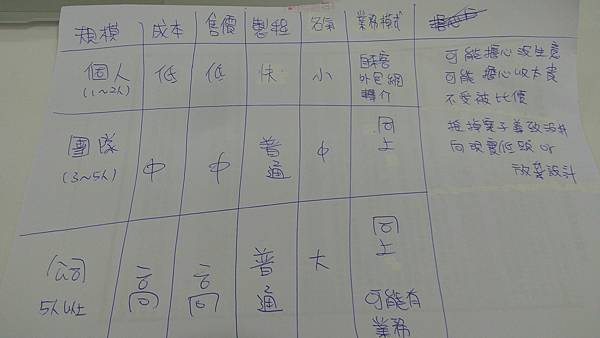 規模 成本 售價 製程 名氣 業務模式
個人 低 低 快 小 自來客 可能擔心沒生意
(1~2人) 外包網 可能擔心收太貴
轉介 不愛被比價
團隊 中 中 普通 中 同上 搶掉案子導致設計
(3~5人) 向現實低頭 or
放棄設計
公司 高 高 普通 大 同上
5人以上 可能有
業務